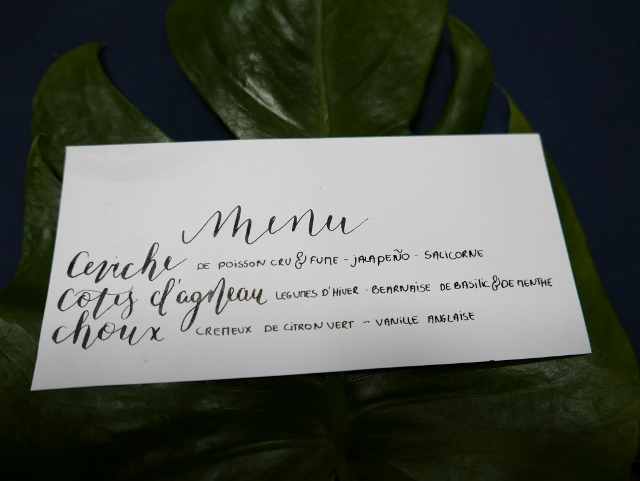 Menu
Ceviche DE POISSON CRU & FUME - JALAPEÑO - SALICORNE
Cotes d'agneau LEGUMES D'HIVER - BEARNAISE DE BASILIC & DE MENTHE
choux CREMEUX DE CITRON VERT - VANILLE ANGLAISE